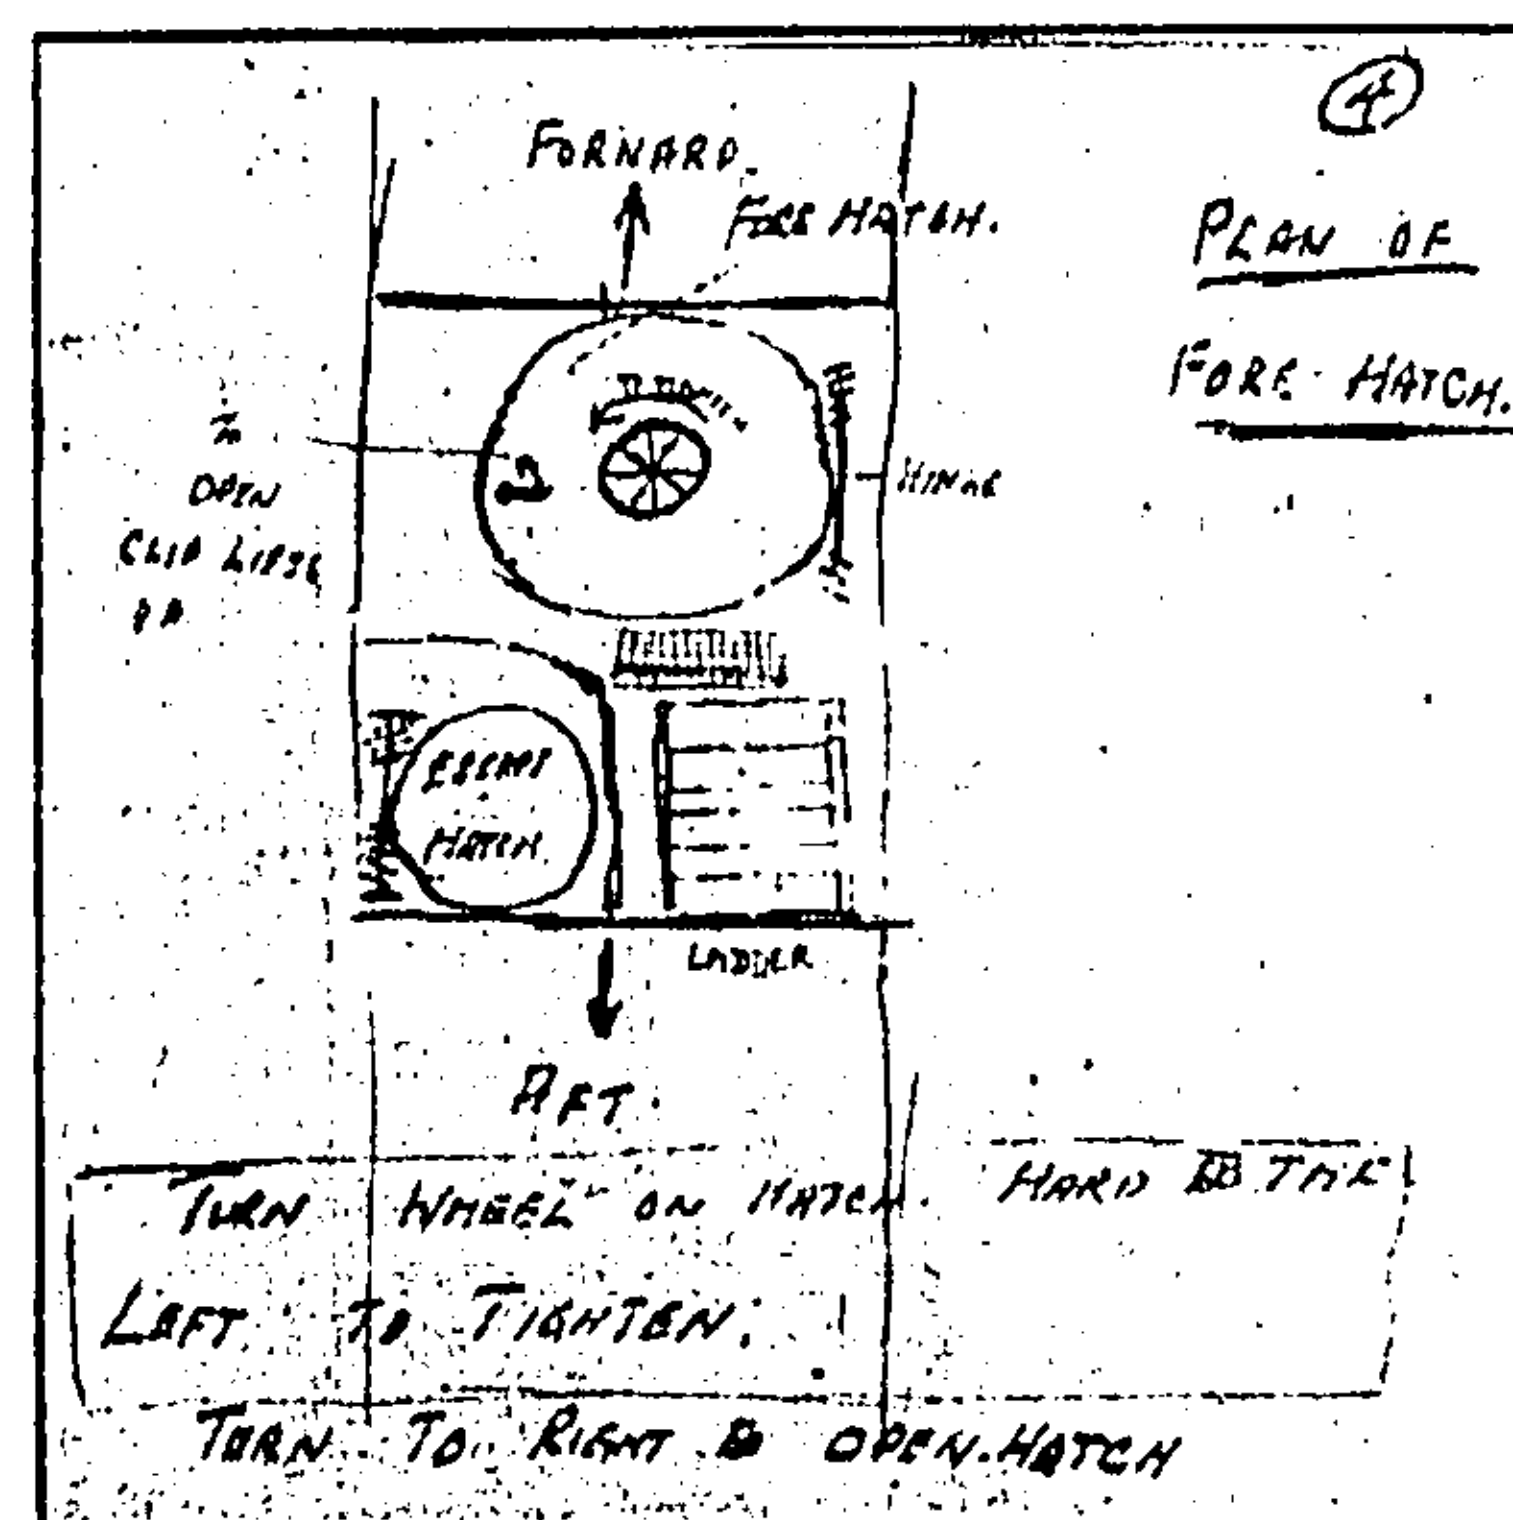 4
FORWARD.
FORE HATCH.
PLAN OF
FORE HATCH.
TO
OPEN
CLIP LIFTS
UP
HINGE
ESCAPE
HATCH
LADDER
AFT.
TURN WHEEL ON HATCH. HARD TO THE
LEFT TO TIGHTEN.
TURN TO RIGHT TO OPEN HATCH